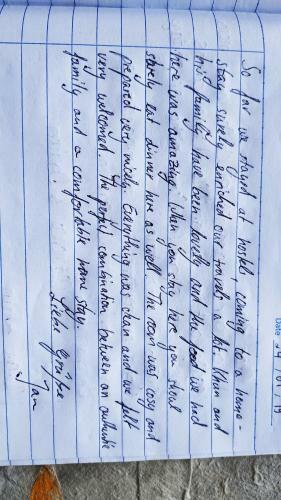 Date 29/01/19
So far we stayed at hostels, coming to a home-
stay surely enriched our travels a lot. Uhan and
his family have been lovely and the food we had
here was amazing. When you stay here you shoul
surely eat dinner here as well. The room was cosy and
prepared very nicely. Everything was clean and we felt
very welcomed. The perfect combination between an authentic
family and a comfortable home stay.
Liebe Grüße
Jan